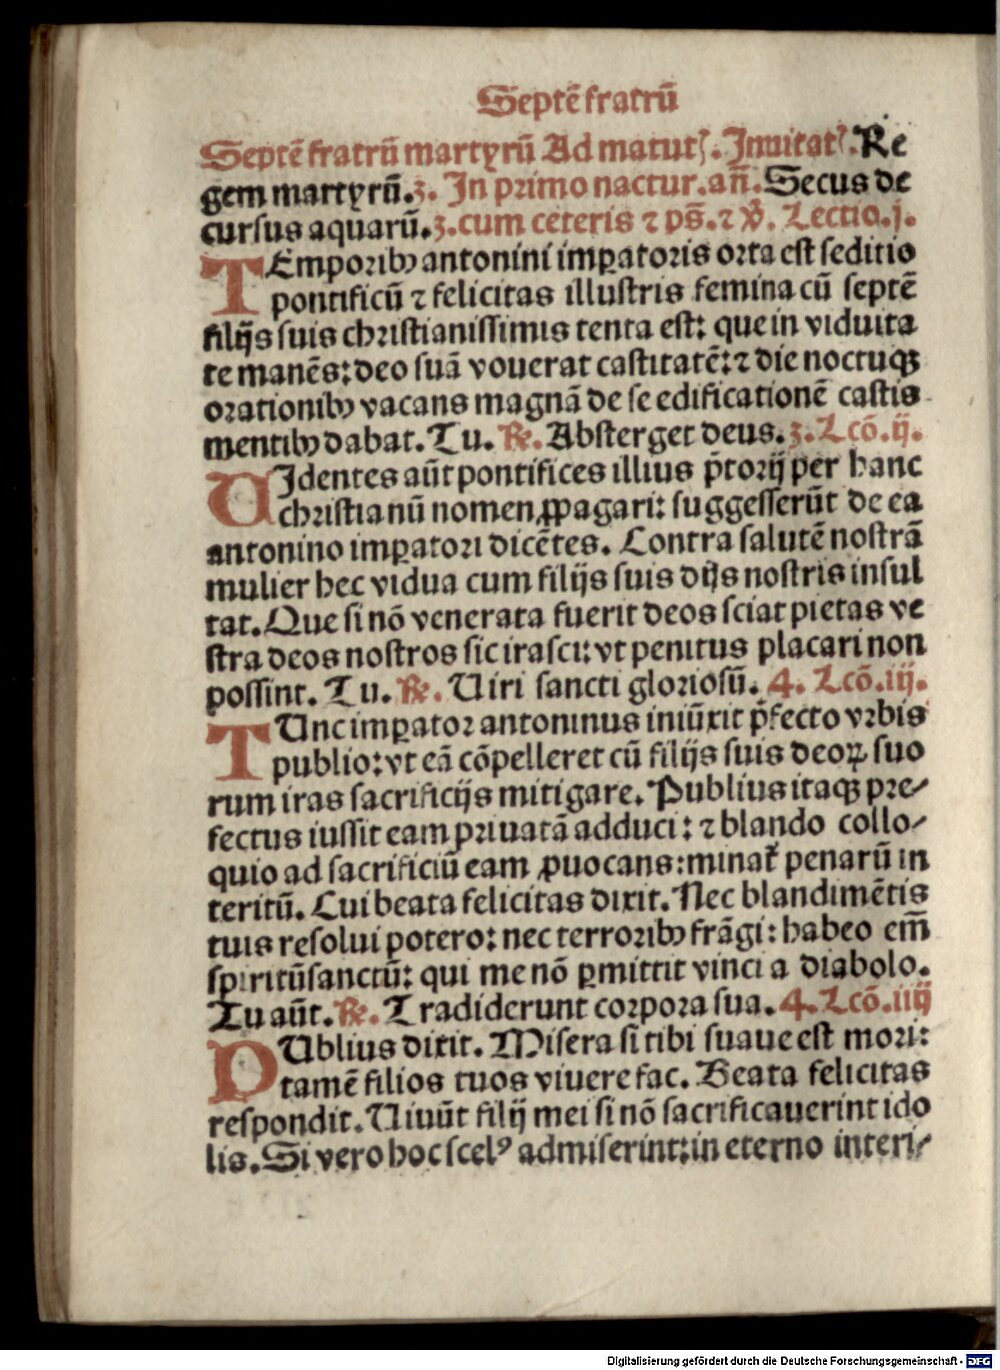 Septē fratrū
Septē fratrū martyrū Ad matutꝭ. Inuitatꝭ. Re
gem martyrū.ʒ. In primo noctur.añ. Secus de
cursus aquarū.ʒ.cum ceteris ⁊ pš.⁊ v̄. Lectio.j.
TEmporibꝫ antonini imꝑatoris orta est seditio
pontificū ⁊ felicitas illustris femina cū septē
filijs suis christianissimis tenta est: que in viduita
te manēs: deo suā vouerat castitatē: ⁊ die noctuqꝫ
orationibꝫ vacans magnā de se edificationē castis
mentibꝫ dabat. Tu. ℞. Absterget deus.ʒ. Lcō.ij.
UIdentes aūt pontifices illius p̄torij per hanc
christianū nomen ꝓpagari: suggesserūt de ea
antonino imꝑatori dicētes. Contra salutē nostrā
mulier hec vidua cum filijs suis dijs nostris insul
tat. Que si nō venerata fuerit deos sciat pietas ve
stra deos nostros sic irasci: vt penitus placari non
possint. Tu. ℞. Uiri sancti gloriosū. 4. Lcō.iij.
TUnc imꝑator antoninus iniūxit p̄fecto vrbis
publio: vt eā cōpelleret cū filijs suis deoꝝ suo
rum iras sacrificijs mitigare. Publius itaqꝫ pre/
fectus iussit eam priuatā adduci: ⁊ blando collo/
quio ad sacrificiū eam ꝓuocans: minat᷑ penarū in
teritū. Cui beata felicitas dixit. Nec blandimētis
tuis resolui potero: nec terroribꝫ frāgi: habeo em̄
spiritūsanctū: qui me nō ꝑmittit vinci a diabolo.
Tu aūt. ℞. Tradiderunt corpora sua. 4. Lcō.iiij
PUblius dixit. Misera si tibi suaue est mori:
tamē filios tuos viuere fac. Beata felicitas
respondit. Uiuūt filij mei si nō sacrificauerint ido
lis. Si vero hoc scelꝰ admiserint: in eterno interi/
Digitalisierung gefördert durch die Deutsche Forschungsgemeinschaft - DFG